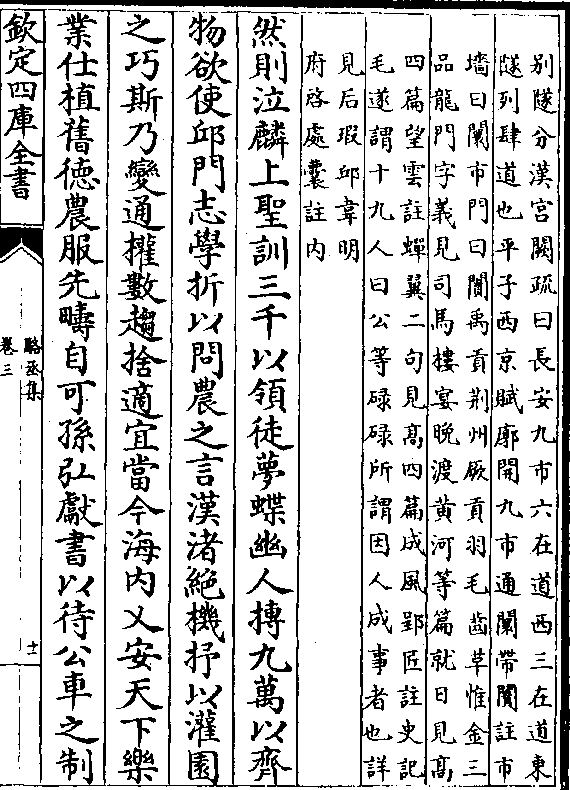 别隧分漢宫闕疏曰長安九市六在道西三在道東
隧列肆道也平子西京賦廓開九市通闤帶闠註市
墻曰闤市門曰闠禹貢荆州厥貢羽毛齒革惟金三
品龍門字義見司馬樓宴晚渡黄河等篇就日見髙
四篇望雲註蟬翼二句見髙四篇成風郢匠註史記
毛遂謂十九人曰公等碌碌所謂因人成事者也詳
見后瑕邱韋明
府啓處囊註内
然則泣麟上聖訓三千以領徒夢蝶幽人摶九萬以齊
物欲使邱門志學折以問農之言漢渚絶機抒以灌園
之巧斯乃變通攉數趨捨適宜當今海内乂安天下樂
業仕植舊徳農服先疇自可孫弘獻書以待公車之制
欽定四庫全書
駱丞集
卷三
十一